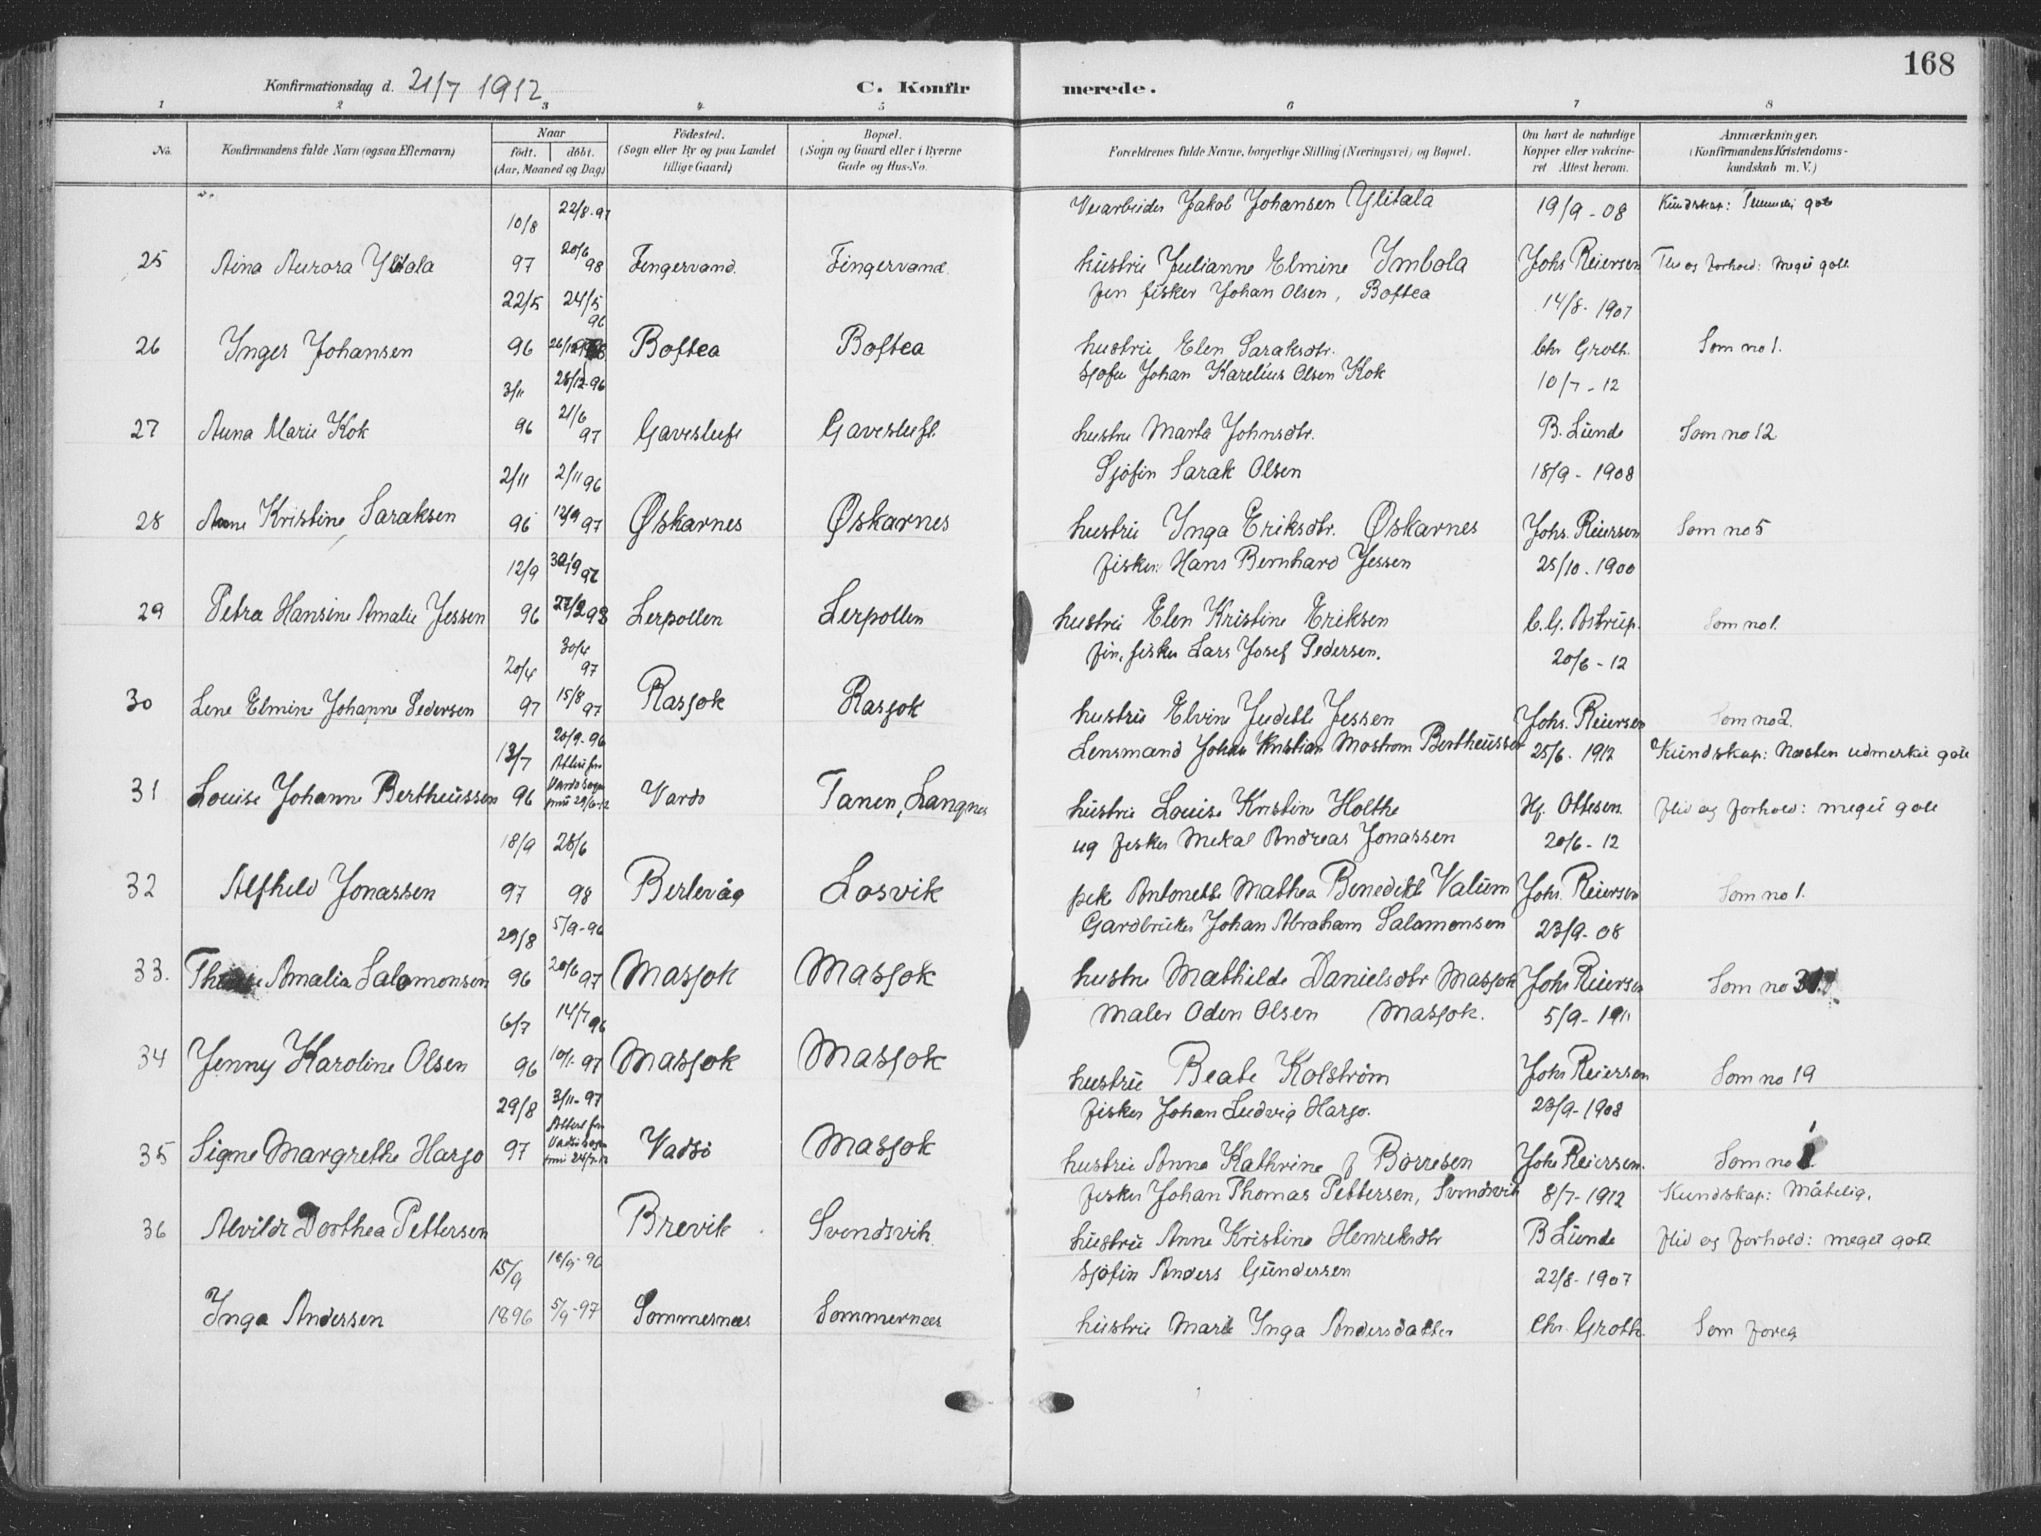 168
Konfirmationsdag d. 21/7 1912
C. Konfir merede.
1 2 3 4 5 6 7 8
No.
Konfirmandens fulde Navn (ogsaa Efternavn)
Naar
født. døbt.
(Aar, Maaned og Dag)
Fødested.
(Sogn eller By og paa Landet
tillige Gaard)
Bopæl.
(Sogn og Gaard eller i Byerne
Gade og Hus-No.
Forældrenes fulde Navne, borgerlige Stilling (Næringsvei) og Bopæl.
Om havt de naturlige
Kopper eller vakcine-
ret Attest herom.
Anmærkninger.
(Konfirmandens Kristendoms-
kundskab m. V.)
10/8 22/8-97 Veiarbeider Jakob Johansen Ylitala 19/9-08 Kundskap: Temmelig godt
25 Aina Aurora Ylitala 97 20/6 98 Fingervand Fingervand hustru Julianne Elmine Imbola Johs Reiersen Flid og forhold: Meget godt
22/5 24/5 96 fin fisker Johan Olsen, Boftea 14/8-1907
26 Inger Johansen 96 Boftea Boftea hustru Elen Saraksdtr. Chr Groth. Som no 1.
3/11 28/12-96 Sjøfin Johan Karelius Olsen Kok 10/7-12
27 Anna Marie Kok 96 21/6 97 Gavesluft Gavesluft hustru Marta Johnsdtr. B. Lunde Som no 12
2/11 2/11 96 Sjøfin Sarak Olsen 18/9-1908
28 Anne Kristine Saraksen 96 12/9 97 Øskarnes Øskarnes hustru Inga Eriksdtr. Øskarnes Johs. Reiersen Som no 5
12/9 fisker Hans Bernhard Jessen 25/10.1900
29 Petra Hansine Amalie Jessen 96 Lerpollen Lerpollen hustru Elen Kristine Eriksen C. G. Astrup. Som no 1.
20/4 30/4 97 fin. fisker Lars Josef Pedersen. 20/6-12
30 Lene Elmine Johanne Pedersen 97 15/8 97 Rasjok Rasjok hustru Elvine Judette Jessen Johs. Reiersen Som no 2.
13/7 20/9-96 Lensmand Johan Kristian Mostrøm Bertheussen 25/6.1912 Kundskap: Næsten udmerket godt
31 Louise Johanne Bertheussen 96 Vardø Tanen, Langnes hustru Louise Kristine Holthe Hj. Ottesen. flid og forhold: meget godt
18/9 28/6 ug fisker Mikal Andreas Jonassen 20/6-12
32 Alfhild Jonassen 97 98 Berlevåg Losvik pike Antonette Mathea Benedikte Valum Johs. Reiersen Som no 1.
29/8 5/9-96 Gardbruker Johan Abraham Salamonsen 23/9-08
33. Amalia Salomonsen 96 20/6 97 Masjok Masjok hustru Mathilde Danielsdtr Masjok Johs Reiersen Som no
6/7 14/7 96 Maler Oden Olsen Masjok. 5/9-1911
34 Jenny Karoline Olsen 96 10/1-97 Masjok Masjok hustru Beate Kolstrøm Johs Reiersen Som no 19
29/8 3/11-97 fisker Johan Ludvig Harjo. 23/9-1908
35 Signe Margrethe Harjo 97 Vadsø Masjok hustru Anne Kathrine f Børresen Johs Reiersen. Som no 1
fisker Johan Thomas Pettersen, Svendsvik 8/7-1912 Kundskap: Måtelig.
36 Alvilde Dorthea Pettersen Brevik Svendsvik hustru Anne Kristine Henriksdtr B Lunde flid og forhold: meget godt
15/9 18/9-96 Sjøfin Anders Gundersen 22/8-1907
Inga Andersen 1896 5/9-97 Sommernes Sommernes hustru Marit Inga Andersdatter Chr. Groth. Som foreg